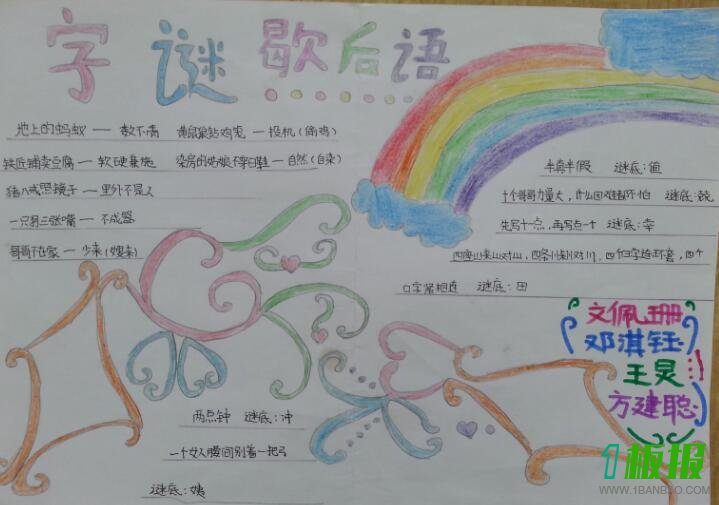 字谜歇后语
地上的蚂蚁 — 数不清
黄鼠狼钻鸡笼 — 投机(偷鸡)
铁匠铺卖豆腐 — 软硬兼施
染房的姑娘不穿白鞋 — 自然(自染)
猪八戒照镜子 — 里外不是人
一只 — 不成器
哥哥不在家 — 少来(嫂来)
半真半假 谜底:值
十个哥哥力量大,什么困难都不怕 谜底:兢
先写十一点,再写点一个 谜底:幸
四座山山对山,四条川川对川,四个日字连环套,四个
口字紧相连 谜底:田
两点钟 谜底:冲
一个女人腰间别着一把弓
谜底:姨
文佩珊
邓淇钰
王灵
方建聪
1板报
WWW.1BANBAO.COM